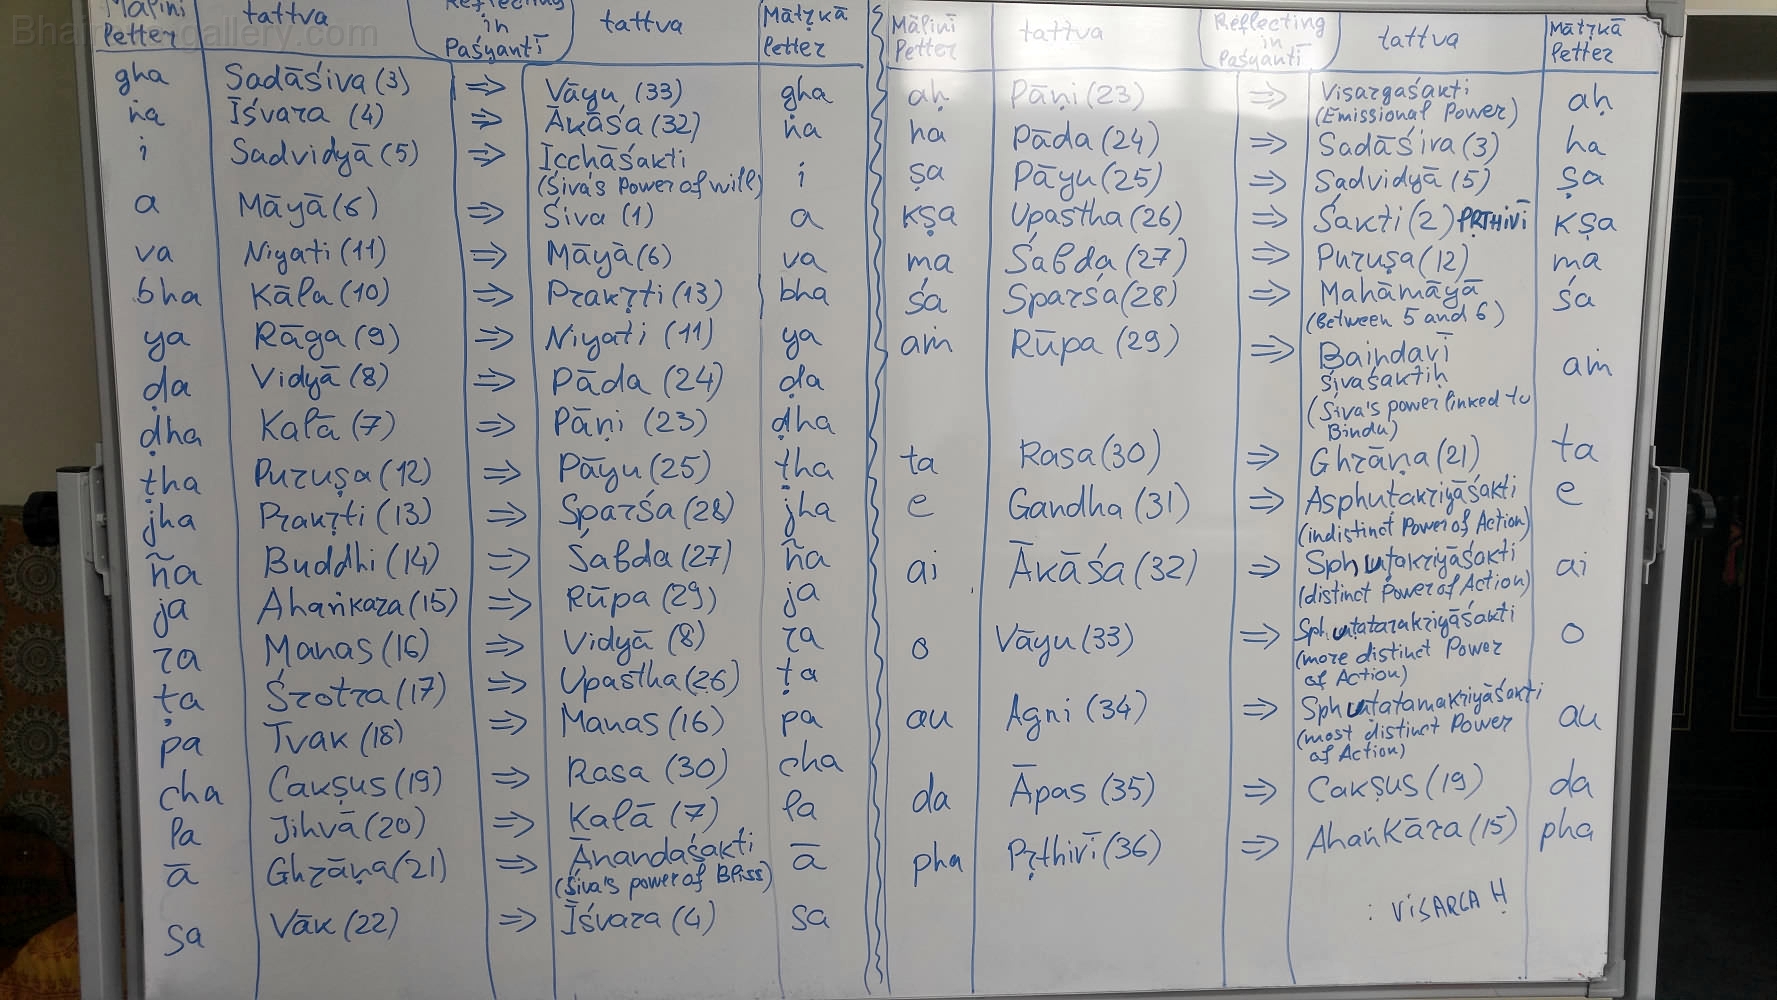 Bhairavgallery.com
Mālinī letter | tattva | Reflecting in Paśyantī | tattva | Mātṛkā letter
gha | Sadāśiva (3) | ⇒ | Vāyu (33) | gha
ṅa | Īśvara (4) | ⇒ | Ākāśa (32) | ṅa
i | Sadvidyā (5) | ⇒ | Icchāśakti | i
(Śiva's Power of will)
a | Māyā (6) | ⇒ | Śiva (1) | a
va | Niyati (11) | ⇒ | Māyā (6) | va
bha | Kāla (10) | ⇒ | Prakṛti (13) | bha
ya | Rāga (9) | ⇒ | Niyati (11) | ya
ḍa | Vidyā (8) | ⇒ | Pāda (24) | ḍa
ḍha | Kalā (7) | ⇒ | Pāṇi (23) | ḍha
ṭha | Puruṣa (12) | ⇒ | Pāyu (25) | ṭha
jha | Prakṛti (13) | ⇒ | Sparśa (28) | jha
ña | Buddhi (14) | ⇒ | Śabda (27) | ña
ja | Ahaṅkara (15) | ⇒ | Rūpa (29) | ja
ra | Manas (16) | ⇒ | Vidyā (8) | ra
ṭa | Śrotra (17) | ⇒ | Upastha (26) | ṭa
pa | Tvak (18) | ⇒ | Manas (16) | pa
cha | Cakṣus (19) | ⇒ | Rasa (30) | cha
la | Jihvā (20) | ⇒ | Kalā (7) | la
ā | Ghrāṇa (21) | ⇒ | Ānandaśakti | ā
(Śiva's power of Bliss)
sa | Vāk (22) | ⇒ | Īśvara (4) | sa
Mālinī letter | tattva | Reflecting in Paśyantī | tattva | Mātṛkā letter
aḥ | Pāṇi (23) | ⇒ | Visargaśakti | aḥ
(Emissional Power)
ha | Pāda (24) | ⇒ | Sadāśiva (3) | ha
ṣa | Pāyu (25) | ⇒ | Sadvidyā (5) | ṣa
kṣa | Upastha (26) | ⇒ | Śakti (2) PṚTHIVĪ | kṣa
ma | Śabda (27) | ⇒ | Puruṣa (12) | ma
śa | Sparśa (28) | ⇒ | Mahāmāyā | śa
(Between 5 and 6)
aṁ | Rūpa (29) | ⇒ | Baindavī | aṁ
Śivaśaktiḥ
(Śiva's power linked to
Bindu)
ta | Rasa (30) | ⇒ | Ghrāṇa (21) | ta
e | Gandha (31) | ⇒ | Asphuṭakriyāśakti | e
(indistinct Power of Action)
ai | Ākāśa (32) | ⇒ | Sphuṭakriyāśakti | ai
(distinct Power of Action)
o | Vāyu (33) | ⇒ | Sphuṭatarakriyāśakti | o
(more distinct Power
of Action)
au | Agni (34) | ⇒ | Sphuṭatamakriyāśakti | au
(most distinct Power
of Action)
da | Āpas (35) | ⇒ | Cakṣus (19) | da
pha | Pṛthivī (36) | ⇒ | Ahaṅkāra (15) | pha
: VISARGA Ḥ